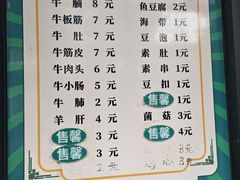 牛腩 8元
牛板筋 7元
牛肚 7元
牛筋皮 7元
牛肉头 6元
牛小肠 5元
牛肺 4元
羊肝 4元
售馨 3元
售馨 3元
2元
鱼豆腐 2元
海带 1元
豆泡 1元
素肚 1元
素串 1元
豆扣 1元
售馨 1元
菌菇 3元
售馨 4元
3元
点心 3元